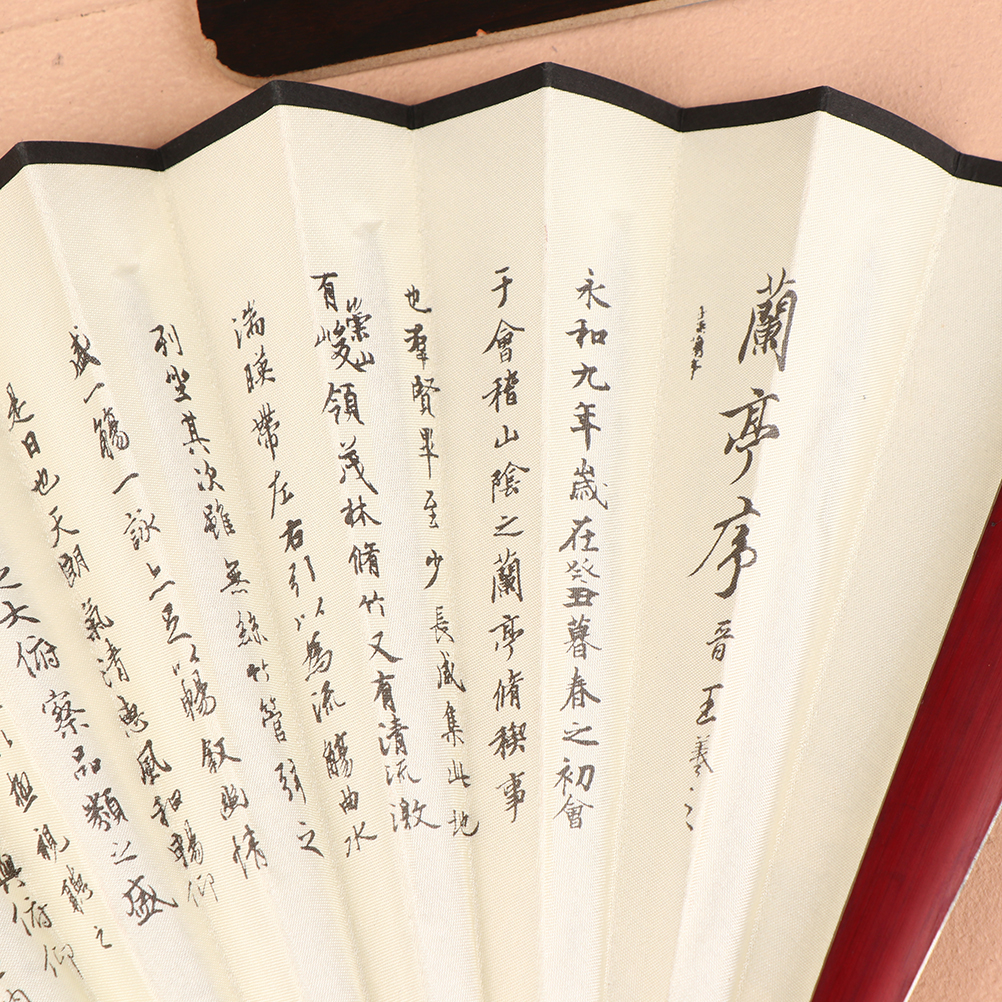 蘭亭序 晉 王羲之
永和九年歲在癸丑暮春之初會
于會稽山陰之蘭亭脩稧事
也羣賢畢至少長咸集此地
有崇山峻領茂林脩竹又有清流激
湍暎帶左右引以為流觴曲水
列坐其次雖無絲竹管弦之
盛一觴一詠亦足以暢敘幽情
是日也天朗氣清惠風和暢仰
之大俯察品類之盛
極視聽之
與俯仰